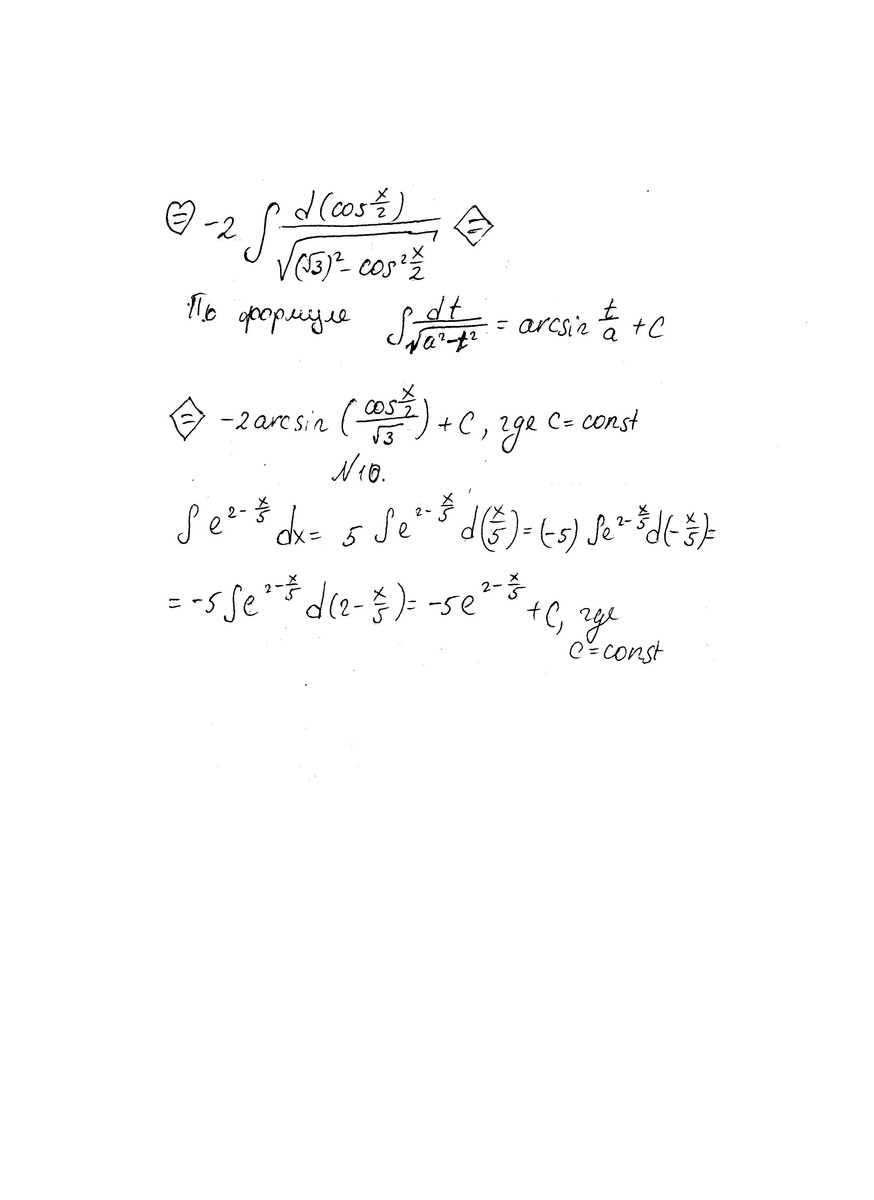 (=) -2 ∫ d(cos x/2) / √((√3)² - cos² x/2) <=>
По формуле ∫ dt / √(a²-t²) = arcsin t/a + C
<=> -2 arcsin (cos x/2 / √3) + C, где C = const
N10.
∫ e^(2 - x/5) dx = 5 ∫ e^(2 - x/5) d(x/5) = (-5) ∫ e^(2 - x/5) d(-x/5) =
= -5 ∫ e^(2 - x/5) d(2 - x/5) = -5e^(2 - x/5) + C, где
C = const